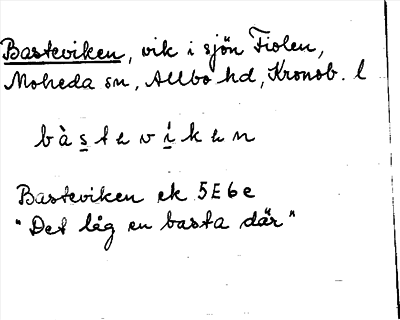 Basteviken, vik i sjön Fiolen,
Moheda sn, Allbo hd, Kronob. l
bàstevíken
Basteviken ek 5E6e
"Det låg en basta där"